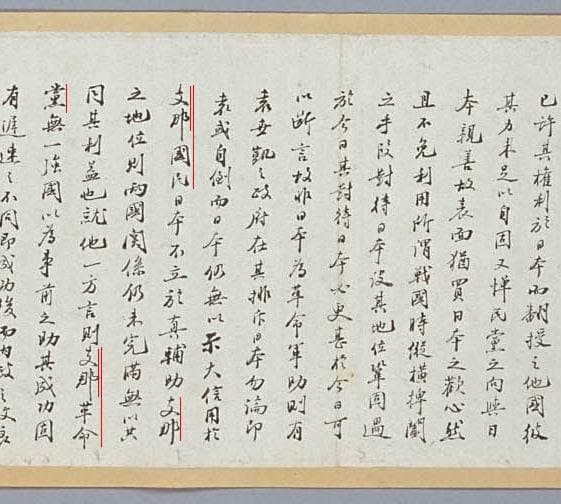 已許其權利於日本而翻授之他國彼
其力未足以自固又憚民黨之向與日
本親善故表面猶買日本之歡心然
且不免利用所謂戰國時縱橫捭闔
之手段對待日本設其地位鞏固過
於今日其對待日本必更甚於今日可
以斷言故非日本為革命軍助則有
袁世凱之政府在其排斥日本勿論即
袁或自倒而日本仍無以示大信用於
支那國民日本不立於真輔助支那
之地位則兩國関係仍未完滿無以共
同其利益也就他一方言則支那革命
黨無一強國以為事前之助其成功固
有遲速之不同即成功後而內政之